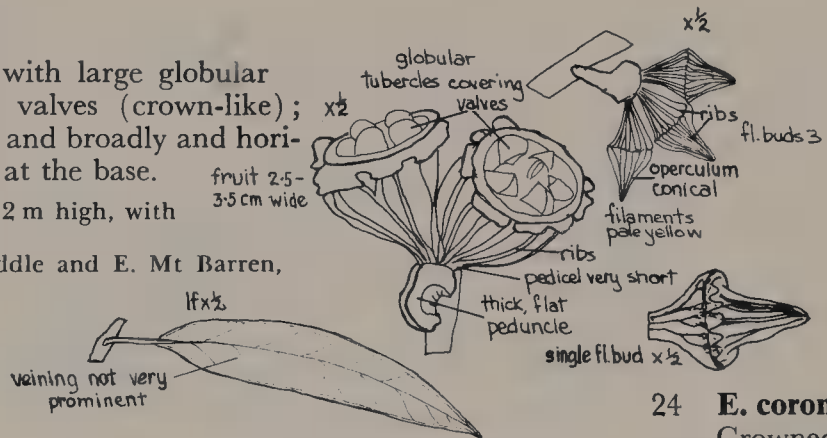 with large globular
valves (crown-like);
and broadly and hori-
at the base.
2 m high, with
ddle and E. Mt Barren,
x½
fruit 2·5-
3·5 cm wide
globular
tubercles covering
valves
x½
ribs
fl. buds 3
operculum
conical
filaments
pale yellow
ribs
pedicel very short
thick, flat
peduncle
single fl. bud x½
lf x½
veining not very
prominent
24 E. coron
Crowned